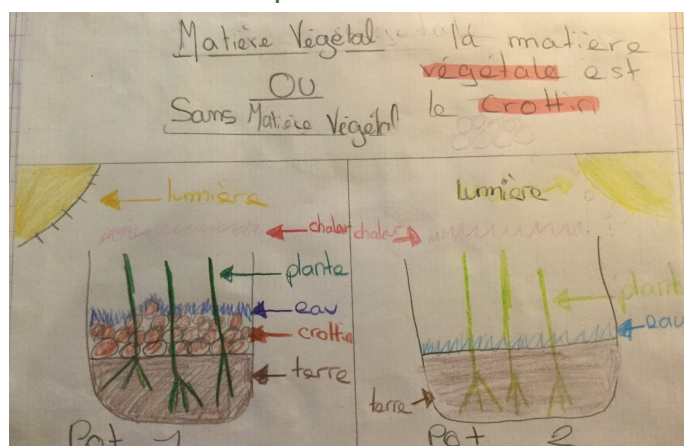 Matière Végétal
OU
Sans Matière Végétal
la matière
végétale est
le crottin
lumière
chalar
plante
eau
crottin
terre
Pot 1
lumière
chalar
plant
eau
terre
Pot 2